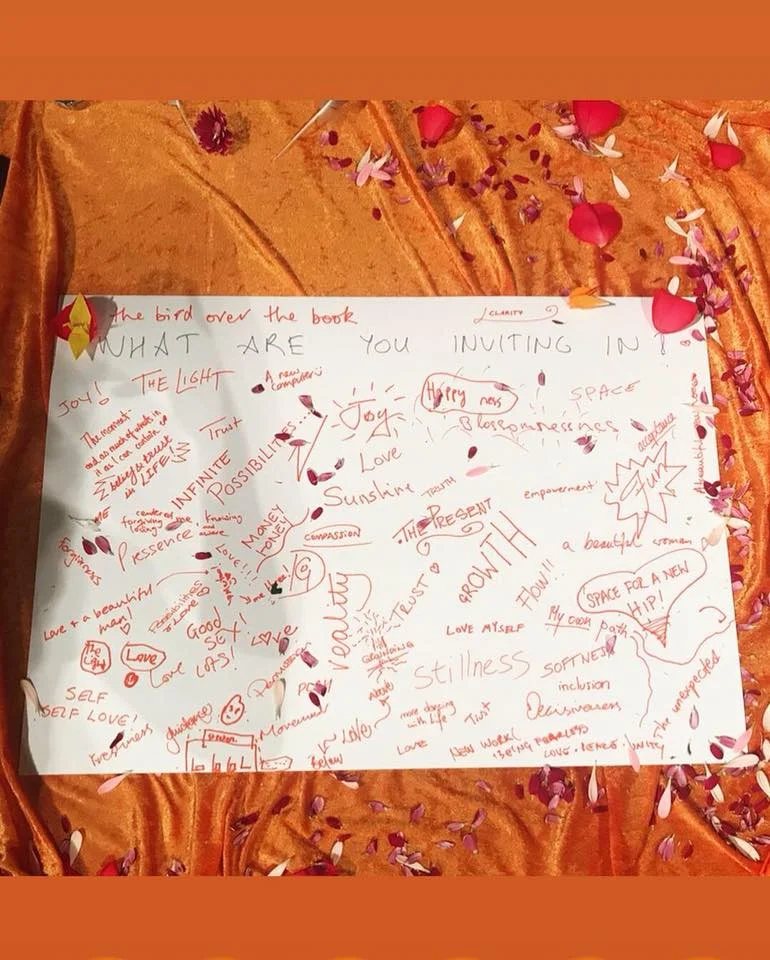 the bird over the book
CLARITY
WHAT ARE YOU INVITING IN?
JOY!
THE LIGHT
A new
computer
Joy
Happyness
SPACE
Blossomnessnes
The moment
and as much of what's in
it as I can contain
belief & trust
in LIFE!
Trust
INFINITE
POSSIBILITIES...
Love
Sunshine
TRUTH
THE PRESENT
empowerment
Fun
acceptance
centered
forgiving
loving
me
knowing
and
aware
Presence
Forgiveness
MONEY
HONEY
COMPASSION
LOVE!!!
GROWTH
a beautiful woman
FLOW!!
SPACE FOR A NEW
HIP!
Love & a beautiful
man!
Good
SEX!
LOVE
LOTS!
reality
TRUST
GROUNDING
LOVE MYSELF
My own path
The
Light
Love
Love
stillness
SOFTNESS
inclusion
SELF
SELF LOVE!
guidance
Movement
above
LOVE
Below
more dancing
with Life
Trust
Decisiveness
The unexpected
Freshness
LOVE
NEW WORK!
BEING FEARLESS
LOVE · PEACE · UNITY